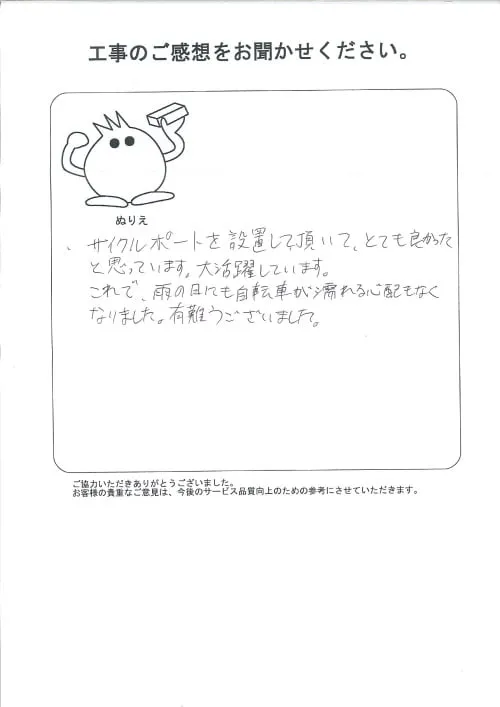 工事のご感想をお聞かせください。
ぬりえ
、サイクルポートを設置して頂いて、とても良かった
と思っています。大活躍しています。
これで、雨の日にも自転車が濡れる心配もなく
なりました。有難うございました。
ご協力いただきありがとうございました。
お客様の貴重なご意見は、今後のサービス品質向上のための参考にさせていただきます。